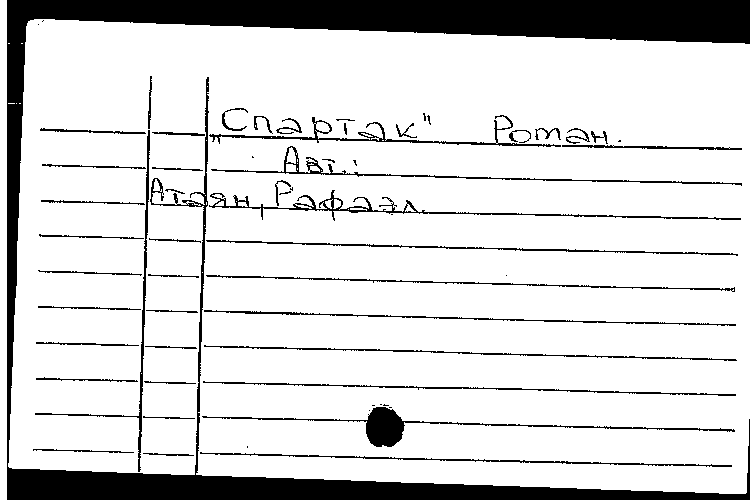 „Спартак" Роман.
Авт.:
Атаян, Рафаэл.